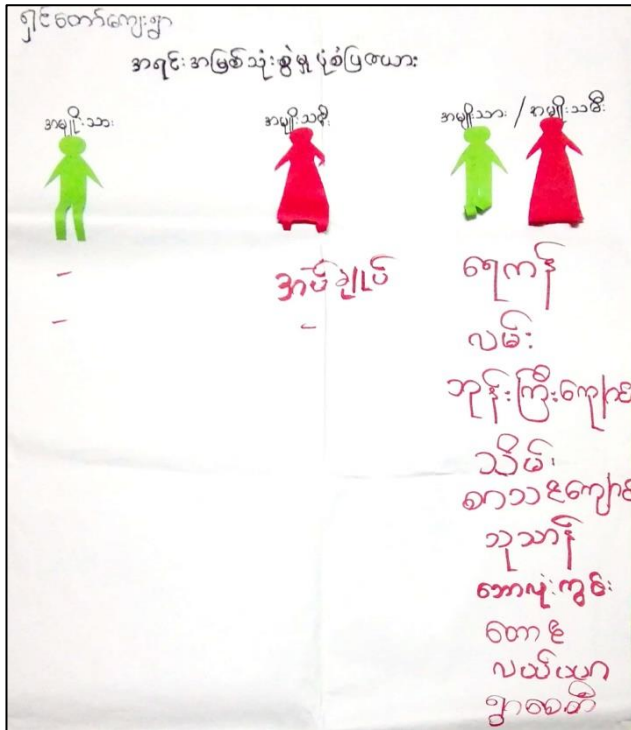 ရှင်တော်ကျေးရွာ
အရင်းအမြစ်သုံးစွဲမှု ပုံစံပြဇယား
အမျိုးသား အမျိုးသမီး အမျိုးသား / အမျိုးသမီး
- အပ်ချုပ် ရေကန်
- - လမ်း
ဘုန်းကြီးကျောင်း
သိမ်
စာသင်ကျောင်း
သုသာန်
ဘောလုံးကွင်း
တော
လယ်ယာ